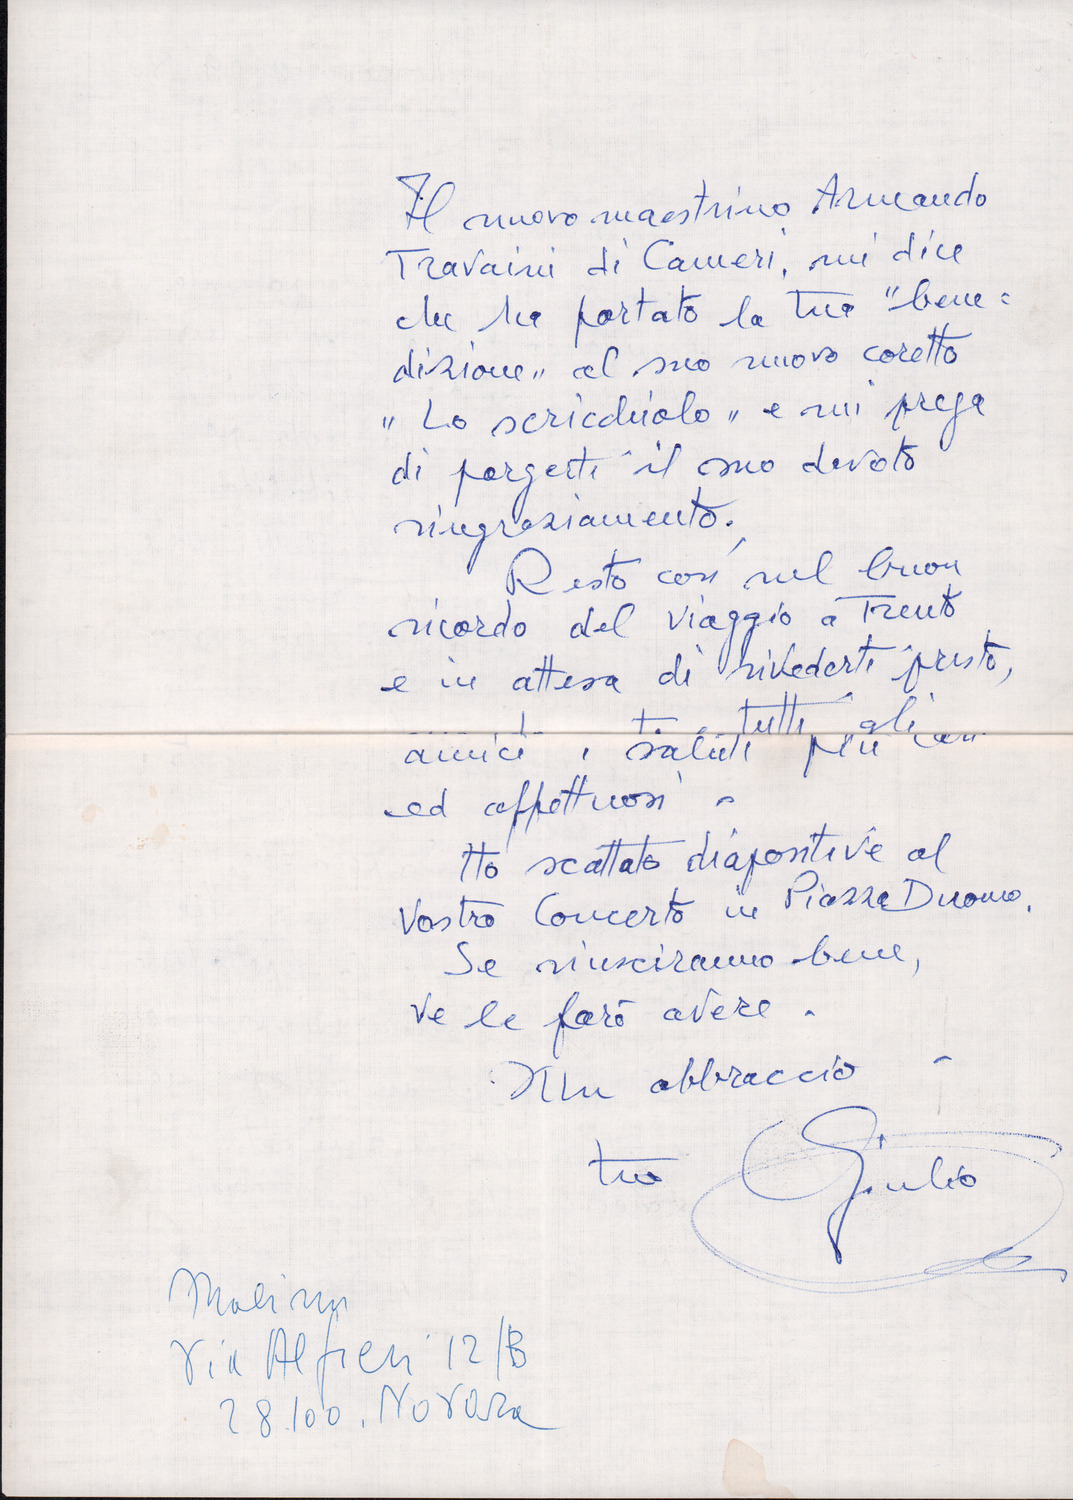 Il nuovo maestrino Armando
Travaini di Cameri, mi dice
che ha portato la tua "bene=
dizione" al suo nuovo coretto
"Lo scricchiolo" e mi prega
di porgerti il suo devoto
ringraziamento.
Resto così nel buon
ricordo del viaggio a Trento
e in attesa di rivederti presto,
tutti gli
amici i saluti più cari
ed affettuosi.
Ho scattato diapositive al
Vostro Concerto in Piazza Duomo.
Se riusciranno bene,
ve le farò avere.
Un abbraccio
tuo Giulio
Via Alfieri 12/B
28100. Novara